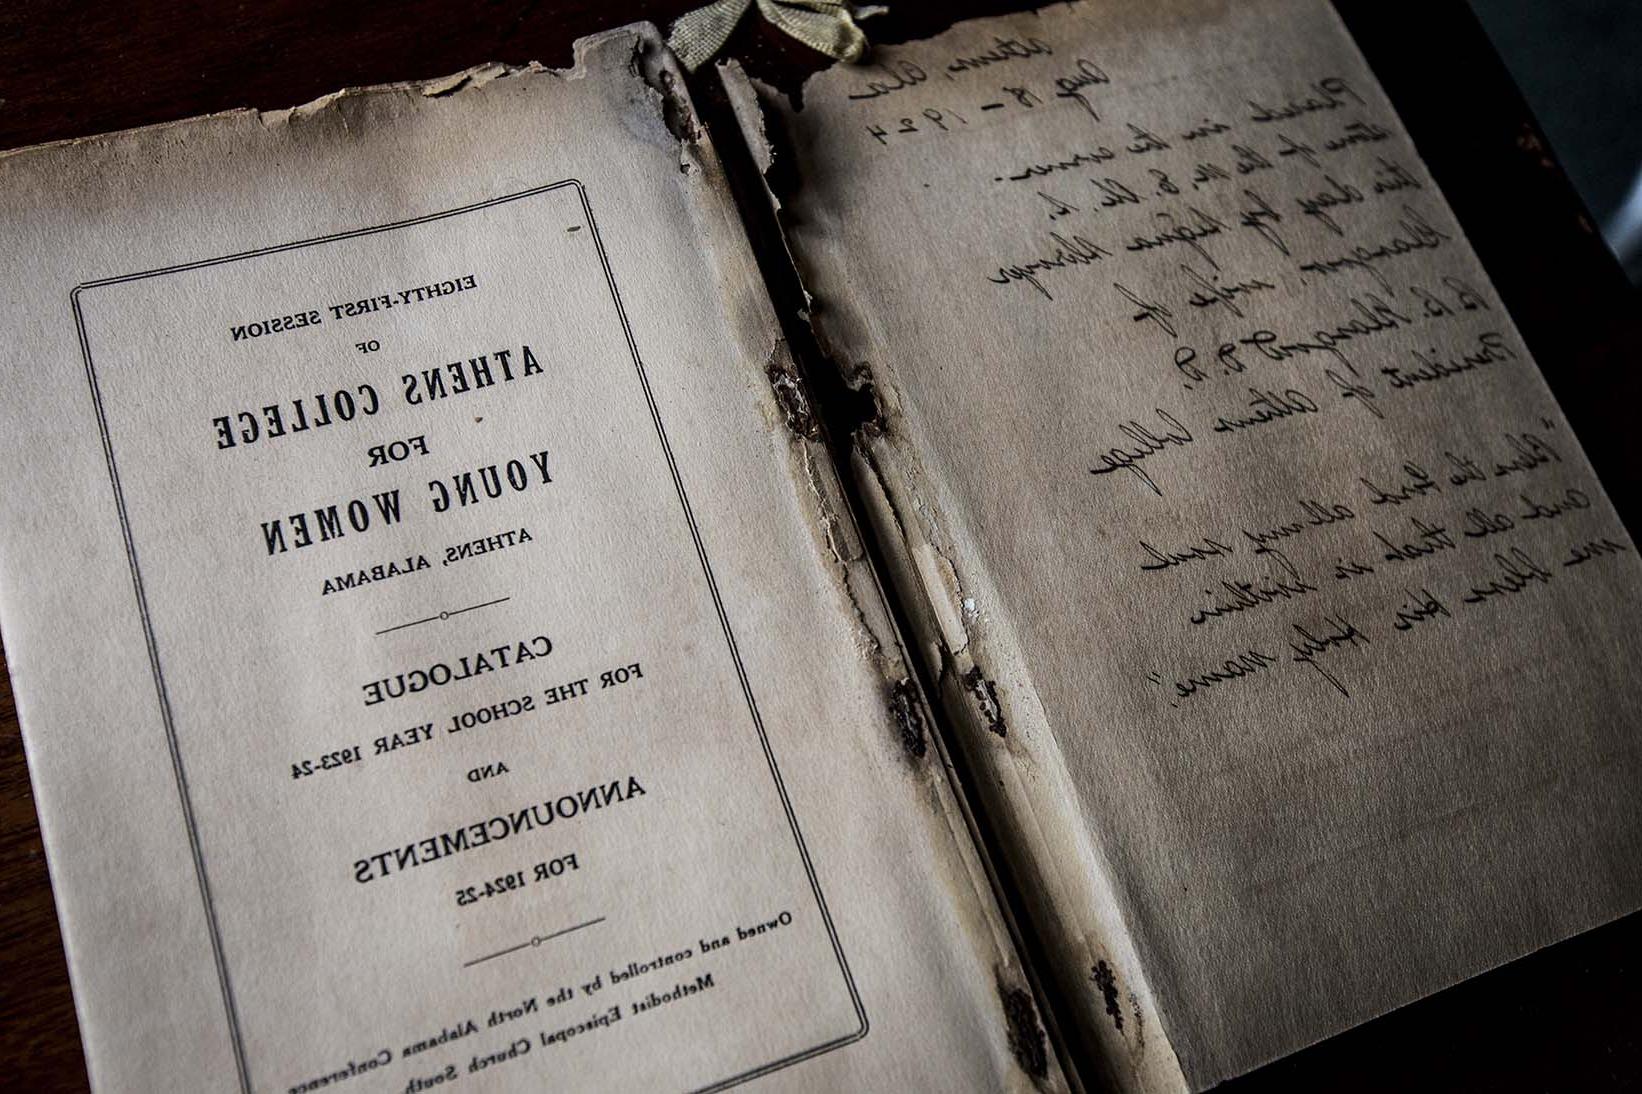 Athens, Ala
Aug 18 - 1924
Placed in the corner-
stone of the M. E. Ch. S.
this day by
Glasgow, wife of
B. B. Glasgow D.D.
President of Athens College
"Bless the Lord my soul
and all that is within
me bless His Holy name".
EIGHTY-FIRST SESSION
OF
ATHENS COLLEGE
FOR
YOUNG WOMEN
ATHENS, ALABAMA
CATALOGUE
FOR THE SCHOOL YEAR 1923-24
AND
ANNOUNCEMENTS
FOR 1924-25
Owned and controlled by the North Alabama Conference
Methodist Episcopal Church South